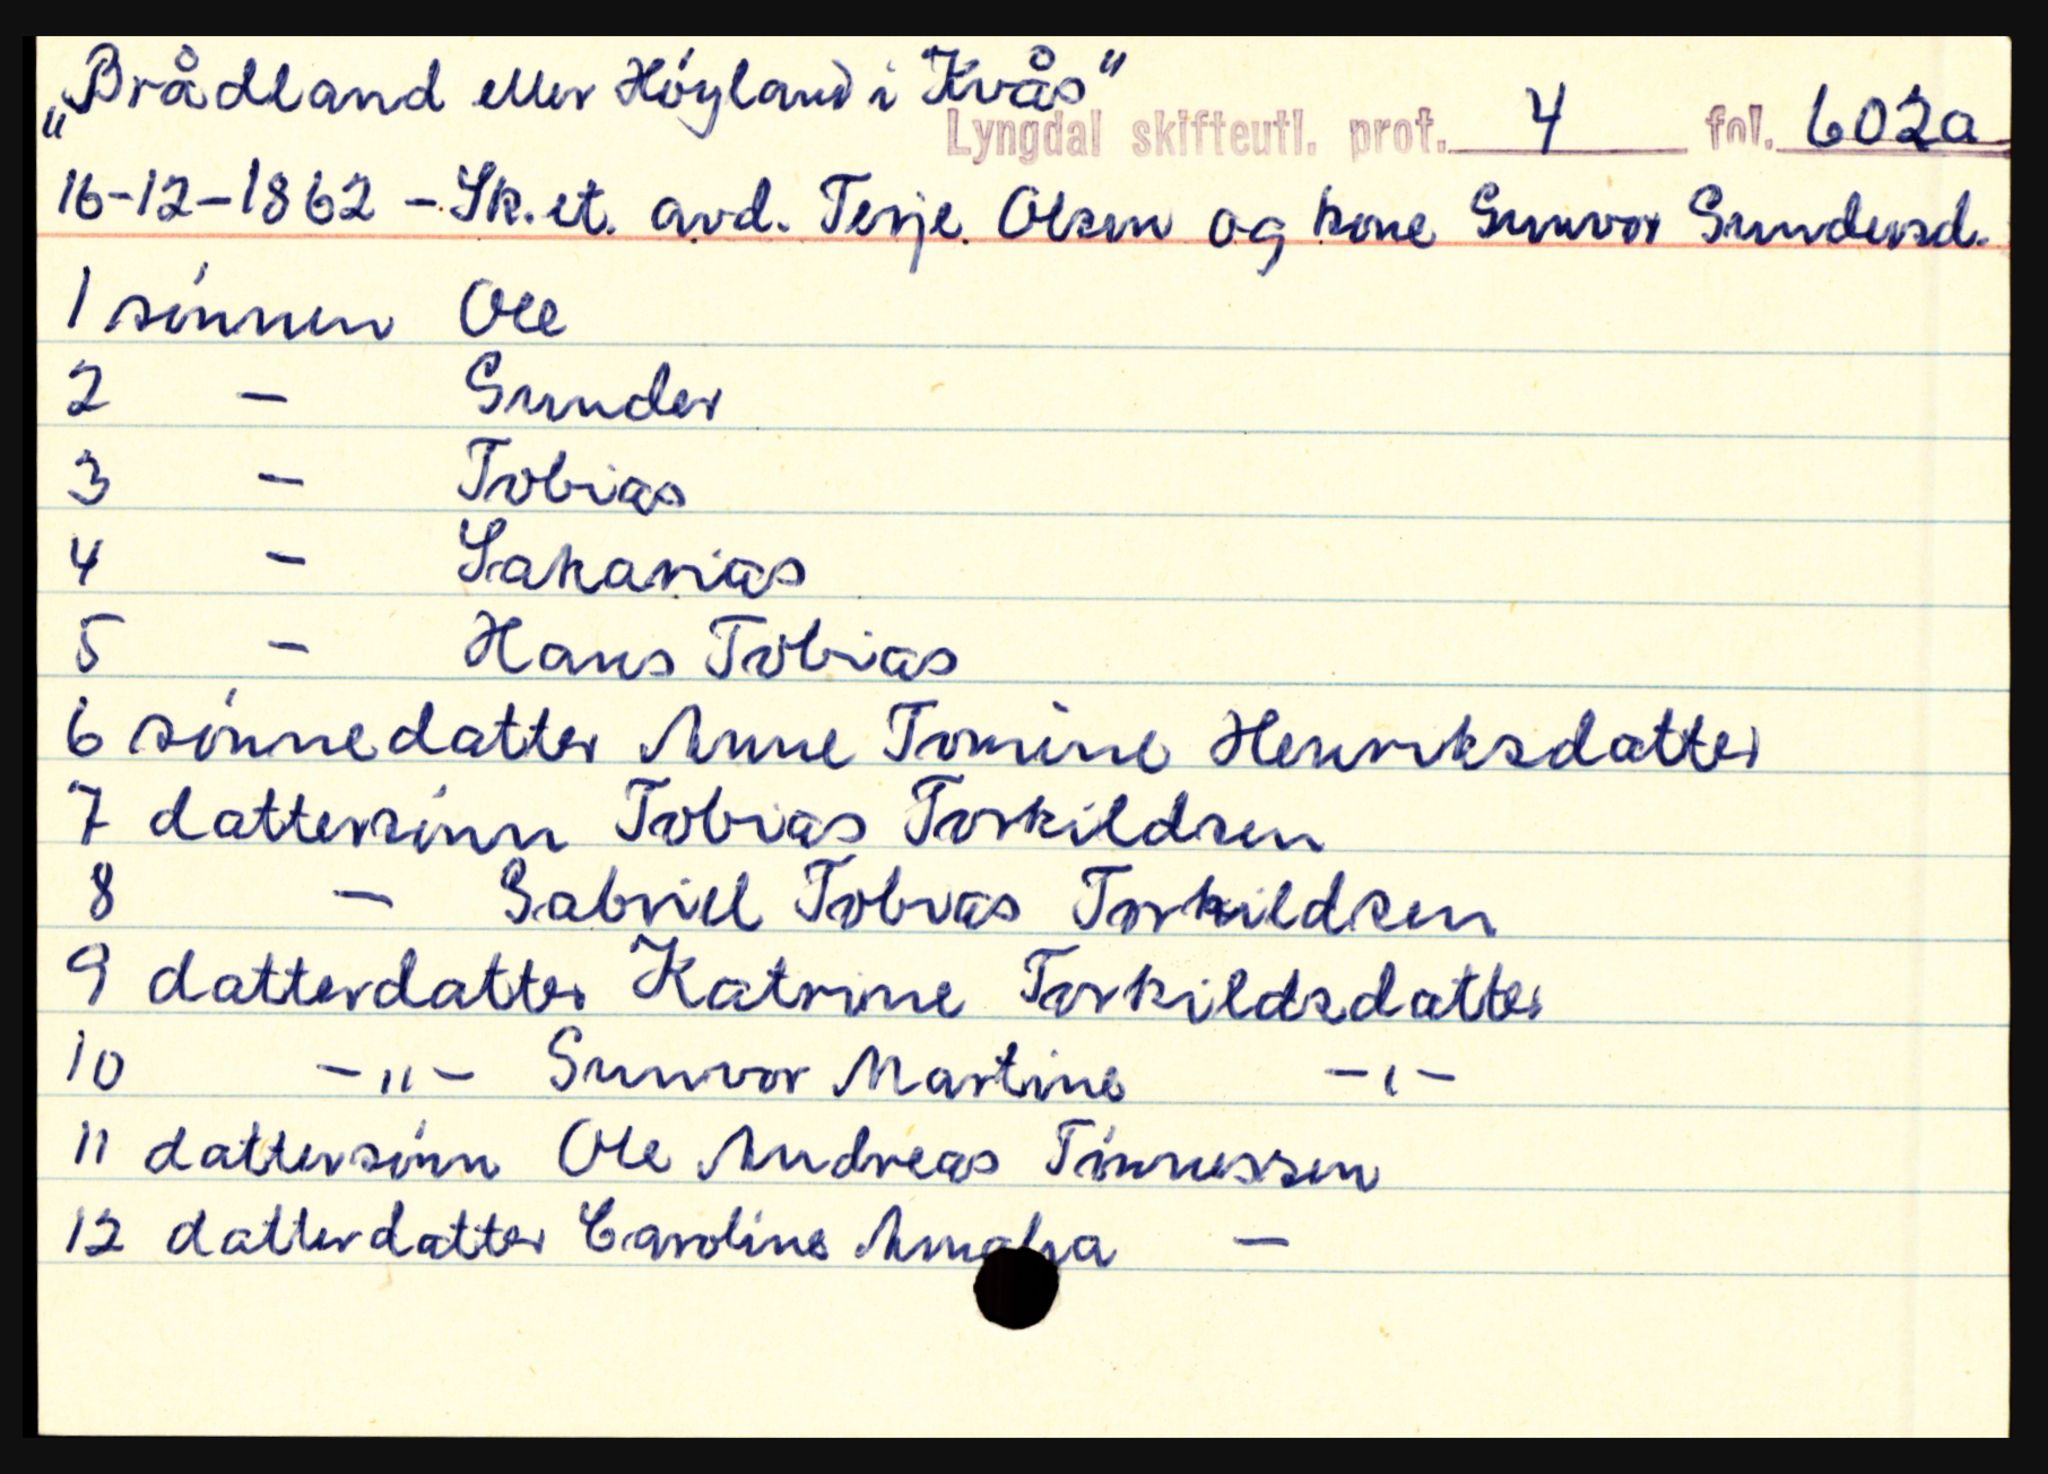 „Brådland eller Höyland i Kvås"
Lyngdal skifteutl. prot. 4 fol. 602a
16-12-1862 - Sk. et. avd. Terje Olsen og kone Gunvor Gundersd.
1 sónnen Ole
2 - Gunder
3 - Tobias
4 - Sakarias
5 - Hans Tobias
6 sónnedatter Anne Tomine Henriksdatter
7 dattersónn Tobias Torkildsen
8 - Gabriel Tobias Torkildsen
9 datterdatter Katrine Torkildsdatter
10 -"- Gunvor Martine -"-
11 dattersónn Ole Andreas Tónnessen
12 datterdatter Caroline Amalia -